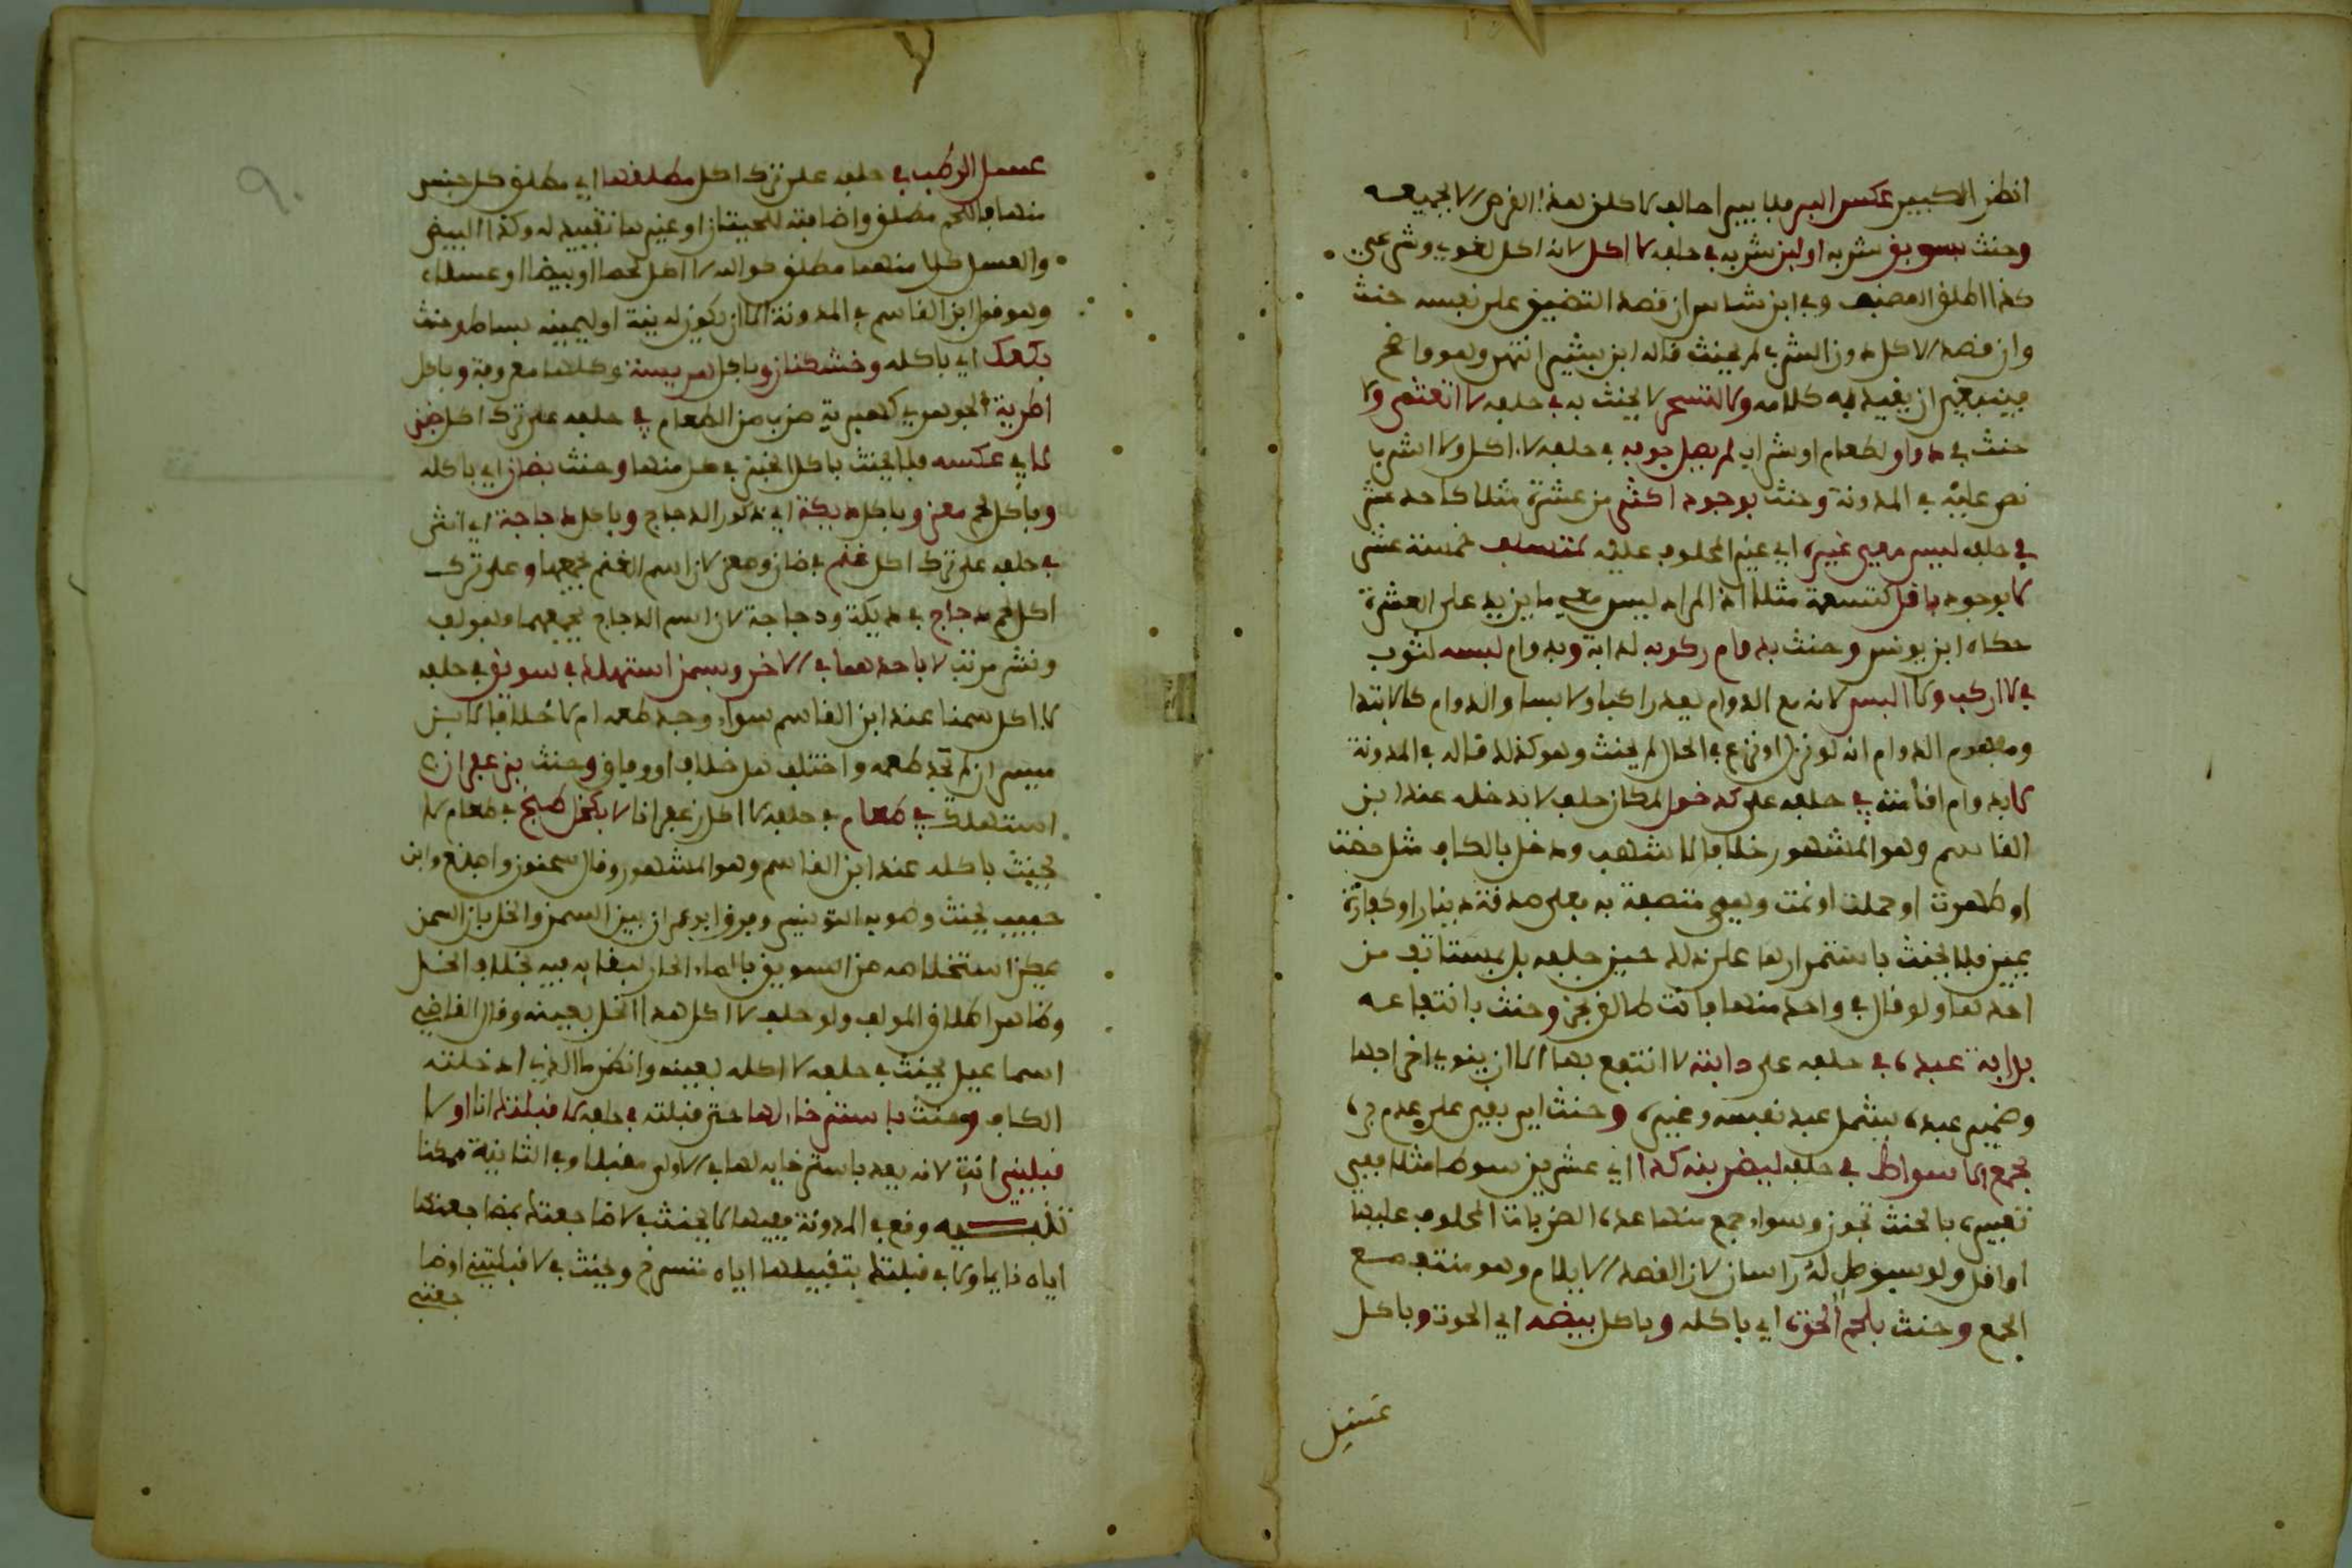 انظر الكبير عكس البر فلا يبر احالف لاكلن هذا القرص الا بجميعه
وحنث بسويق شربه او لبن شربه في حلفه لا اكل لانه اكل لغوي وشرعي
كذا اطلق المصنف وفي ابن شاس ان قصد التضييق على نفسه حنث
وان قصد الاكل دون الشرب لم يحنث قاله ابن بشير انتهى وهو واضح
فينبغي ان يقيد به كلامه ولا لتسحر لا يحنث به في حلفه لا اتعشى ولا
حنث في دوا ولطعام او شراب لم يصل جوفه في حلفه لا اكل ولا اشرب
نص عليه في المدونة وحنث بوجود اكثر من عشرة مثلا كاحد عشر
في حلفه ليس معي غيره اي غير المحلوف عليه لمتسلف خمسة عشر
لا بوجود اقل كتسعة مثلا اذ المراد ليس معي ما يزيد على العشرة
حكاه ابن يونس وحنث بدوام ركوبه لدابة وبدوام لبسه لثوب
في لا اركب ولا البس لانه مع الدوام يعد راكبا ولابسا والدوام كالابتدا
ومفهوم الدوام انه لو نزل او نزع في الحال لم يحنث وهو كذلك قاله في المدونة
لا بدوام اقامته في حلفه على كدخول لمكان حلف لا يدخله عند ابن
القاسم وهو المشهور خلافا لاشهب ودخل بالكاف مثل حضت
او طهرت او حملت او نمت وهي متصفة به فعلي صدقة دينار او كفارة
يمين فلا يحنث باستمرارها على ذلك حين حلفه بل بمستانف من
احدها ولو قال في واحد منها فانت طالق نجز وحنث بانتفاعه
بدابة عبده في حلفه على دابته لا انتفع بها الا ان ينوي اخراجها
وضمير عبده يشمل عبد نفسه وغيره وحنث اي بقي على عدم بره
بجمع الاسواط في حلفه ليضربنه كذا اي عشرين سوطا مثلا ففي
تعبيره بالحنث تجوز وسواء جمع منها عدد الضربات المحلوف عليها
او اقل ولو بسوط له راسان لان القصد الايلام وهو منتف مع
الجمع وحنث بلحم الحوت اي باكله وباكل بيضه اي الحوت وباكل
عسل
عسل الرطب في حلفه على ترك اكل مطلقها اي مطلق كل جنس
منها فاللحم مطلق واضافته للحيتان او غيرها تقييد له وكذا البيض
والعسل كل منهما مطلق كوالله لا اكل لحما او بيضا او عسلا
وهو قول ابن القاسم في المدونة الا ان يكون له نية او ليمينه بساط وحنث
بكعك اي باكله وخشكنان وباكل هريسة وكلها معروفة وباكل
اطرية الجوهري كهبرية ضرب من الطعام في حلفه على ترك اكل خبز
لا في عكسه فلا يحنث باكل الخبز في كل منها وحنث بضان اي باكله
وباكل لحم معز وباكل ديكة اي ذكور الدجاج وباكل دجاجة اي انثى
في حلفه على ترك اكل غنم في ضان ومعز لان اسم الغنم يجمعهما وعلى ترك
اكل لحم دجاج في ديكة ودجاجة لان اسم الدجاج يجمعهما وهو لف
ونشر مرتب لا باحدهما في الاخر وبسمن استهلك في سويق في حلفه
لا اكل سمنا عند ابن القاسم سواء وجد طعمه ام لا خلافا لابن
ميسر ان لم يجد طعمه واختلف هل خلاف او وفاق وحنث بزعفران
استهلك في طعام في حلفه لا اكل زعفرانا لا بكخل طبخ في طعام لا
يحنث باكله عند ابن القاسم وهو المشهور وقال سحنون واصبغ وابن
حبيب يحنث وصوبه التونسي وفرق ابو عمران بين السمن والخل بان السمن
يمكن استخلاصه من السويق بالماء الحار لبقايه فيه بخلاف الخل
وظاهر اطلاق المولف ولو حلف لا اكل هذا الخل بعينه وقال القاضي
اسماعيل يحنث في حلفه لا اكله بعينه وانظر ما الذي ادخلته
الكاف وحنث باسترخاء لها حتى قبلته في حلفه لا قبلتك انا او لا
قبلتني انت لانه يعد باسترخايه لها في الاولى مقبلا وفي الثانية ممكنا
تنبيه وقع في المدونة فيها لا يحنث في لا ضاجعتك بمضاجعتها
اياه نايما ولا في قبلتك بتقبيلها اياه مسترخ ويحنث في لا قبلتني او ضا
جعتني
٩٠